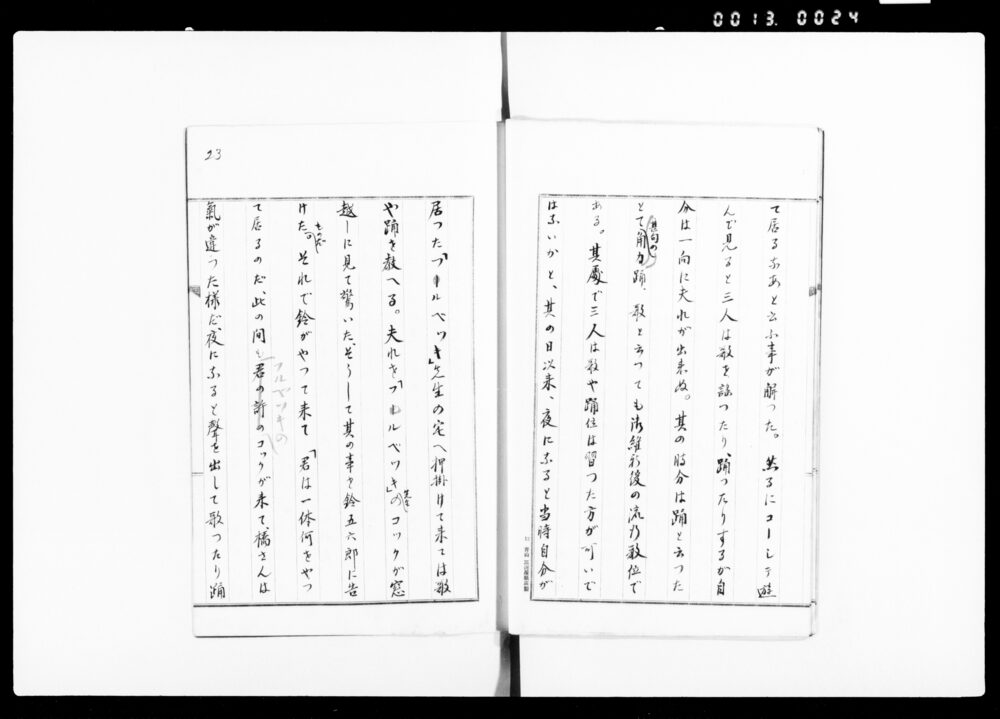 0013.0024
て居るなあと云ふ事が解つた。然るにコーして遊
んで見ると三人は歌を謡つたり、踊つたりするが自
分は一向に夫れが出来ぬ。其の時分は踊と云つた
とて角力踊、歌と云つても御維新後の流行歌位で
ある。其處で三人は歌や踊位は習つた方が可いで
はないかと、其の日以来、夜になると当時自分が
居つた「フルベツキ」先生の宅へ押掛けて来ては歌
や踊を教へる。夫れを「フルベツキ」のコックが窓
先生
越しに見て驚いた、そうして其の事を鈴五六郎に告
けた。それで鈴がやつて来て「君は一体何をやつ
ものだ
て居るのだ、此の間も君の許のコックが来て、橋さんは
フルベツキの
氣が違つた様だ、夜になると聲を出して歌つたり踊
23